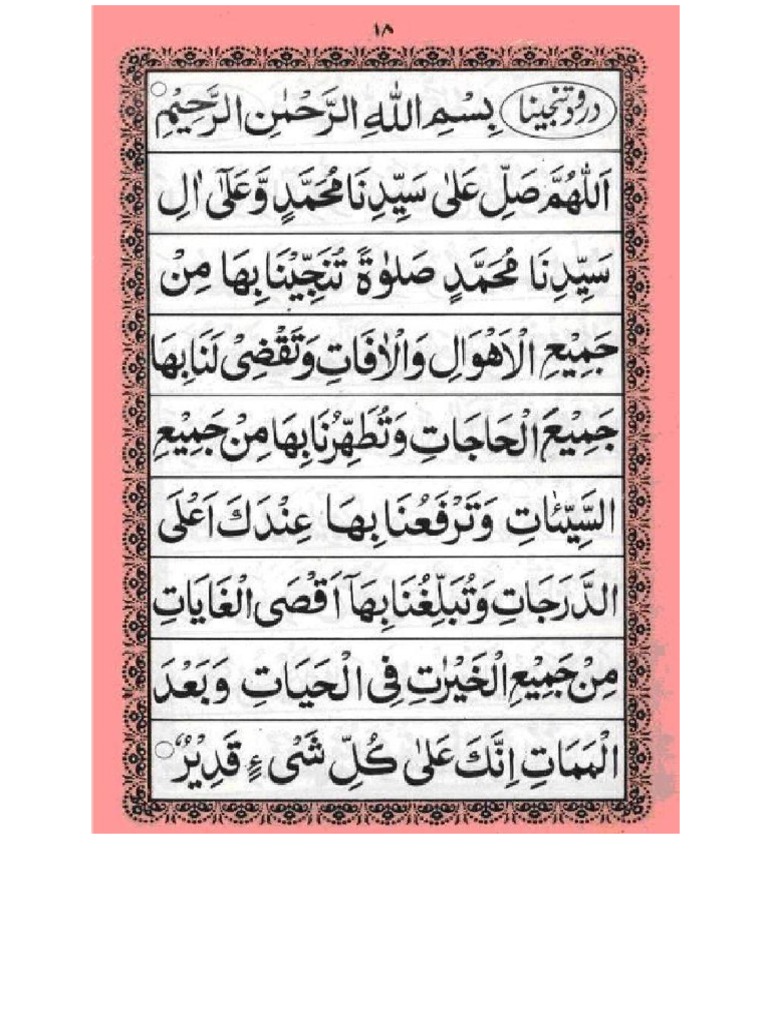 ١٨
درود تنجینا بِسْمِ اللهِ الرَّحْمٰنِ الرَّحِيْمِ
اَللّٰهُمَّ صَلِّ عَلٰى سَيِّدِنَا مُحَمَّدٍ وَّعَلٰٓى اٰلِ
سَيِّدِنَا مُحَمَّدٍ صَلٰوةً تُنَجِّيْنَا بِهَا مِنْ
جَمِيْعِ الْاَهْوَالِ وَالْاٰفَاتِ وَتَقْضِىْ لَنَا بِهَا
جَمِيْعَ الْحَاجَاتِ وَتُطَهِّرُنَا بِهَا مِنْ جَمِيْعِ
السَّيِّئٰاتِ وَتَرْفَعُنَا بِهَا عِنْدَكَ اَعْلَى
الدَّرَجَاتِ وَتُبَلِّغُنَا بِهَآ اَقْصَى الْغَايَاتِ
مِنْ جَمِيْعِ الْخَيْرٰتِ فِى الْحَيَاتِ وَبَعْدَ
الْمَمَاتِ اِنَّكَ عَلٰى كُلِّ شَىْءٍ قَدِيْرٌ